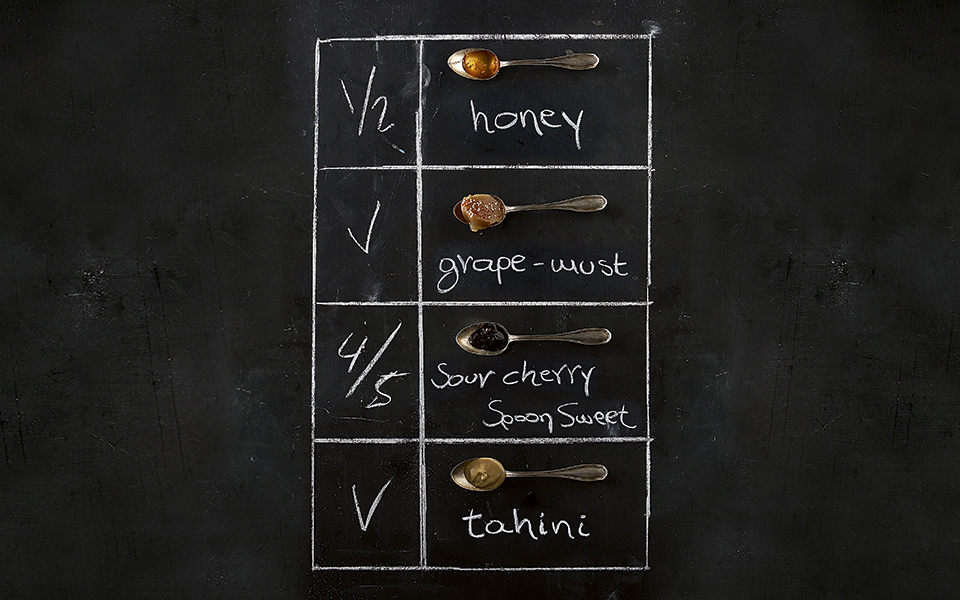 1/2
honey
✓
grape-must
4/5
Sour cherry
Spoon Sweet
✓
tahini